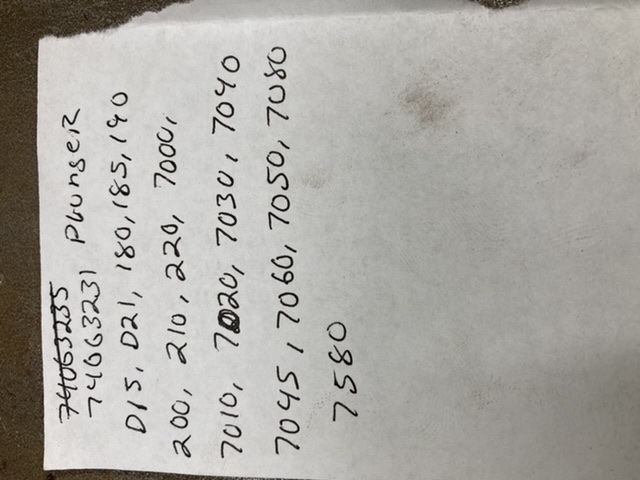 74063235
74063231 Plunger
D15, D21, 180, 185, 190
200, 210, 220, 7000,
7010, 7020, 7030, 7040
7045, 7060, 7050, 7080
7580